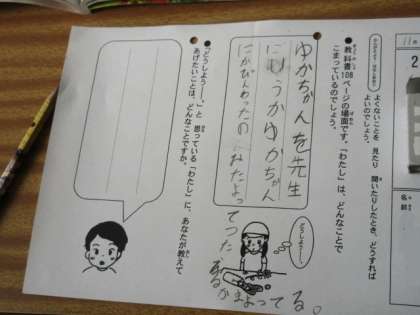 11月
2
かんがえよう はなしあおう
よくないことを 見たり 聞いたりしたとき、どうすれば
よいのでしょう。
名前
●教科書108ページの場面です。「わたし」は、どんなことで
こまっているのでしょう。
ゆかちゃんを先生
にゆうかゆかちゃん
にかびんわったの
ねたよって
てつた
まよってる。
どうしよう…。
●「どうしよう…。」と 思っている「わたし」に、あなたが教えて
あげたいことは、どんなことですか。